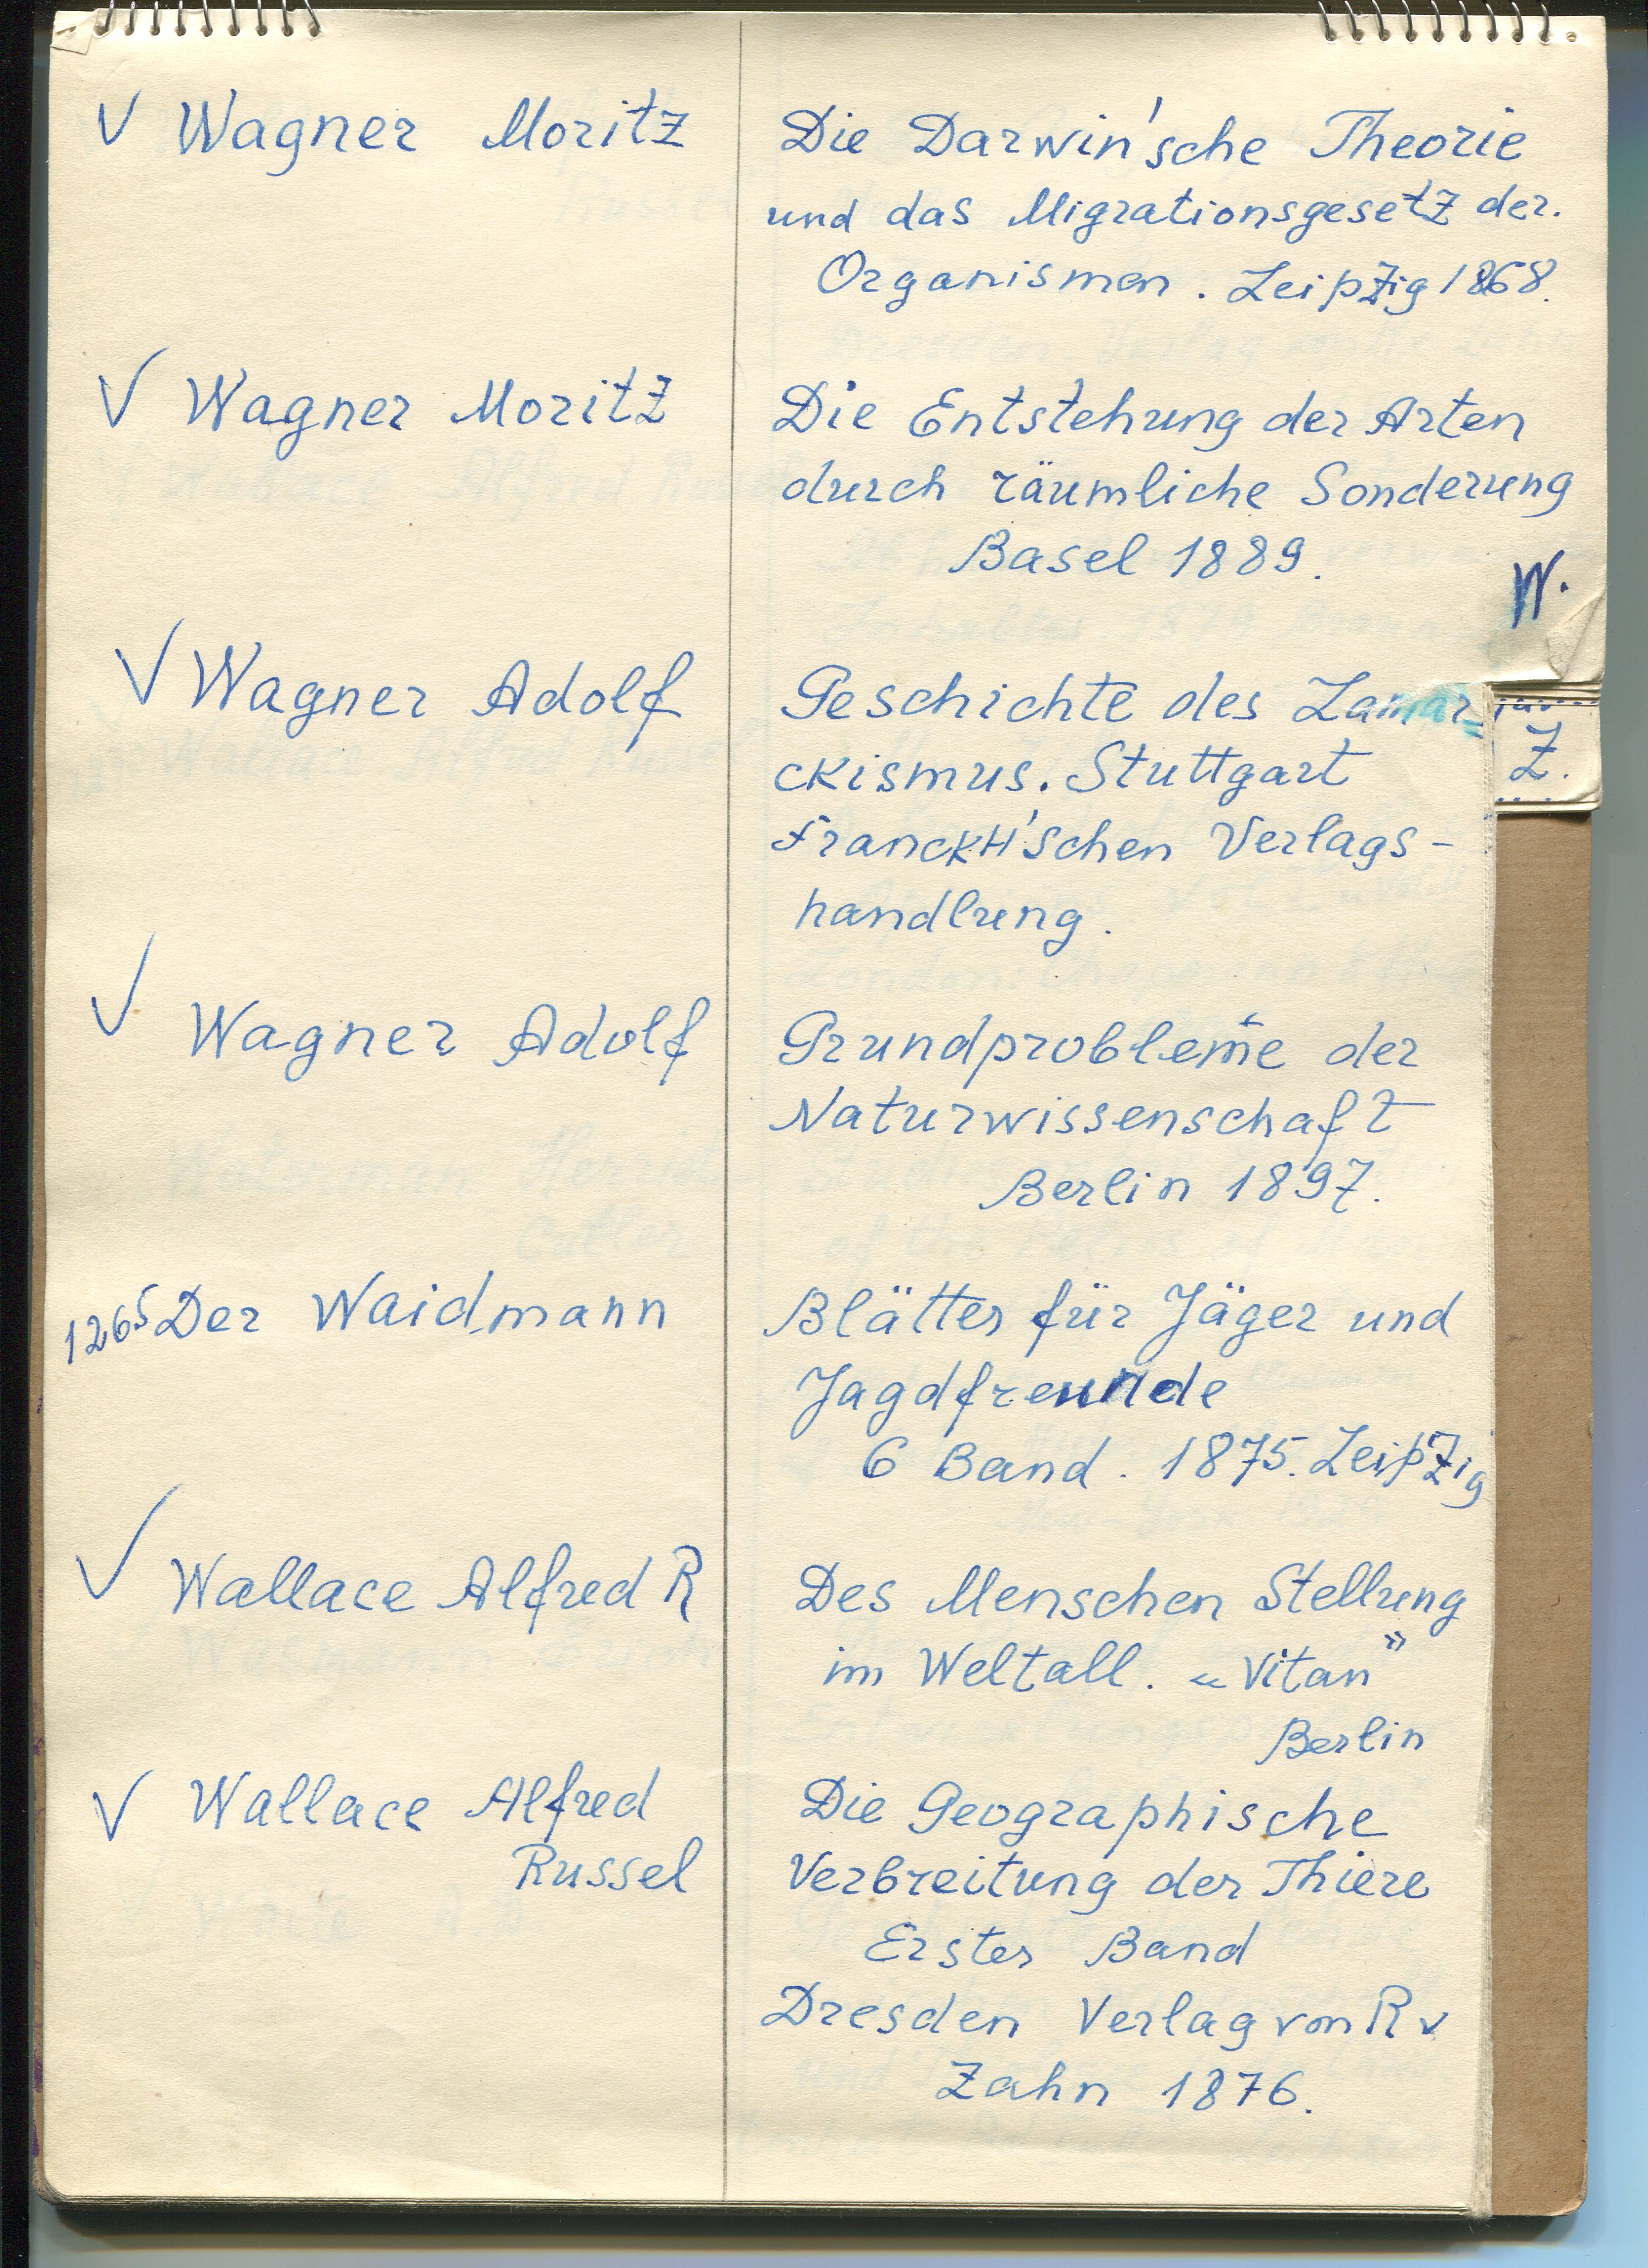 ✓ Wagner Moritz
Die Darwin'sche Theorie
und das Migrationsgesetz der.
Organismen. Leipzig 1868.
✓ Wagner Moritz
Die Entstehung der Arten
durch räumliche Sonderung
Basel 1889.
W.
✓ Wagner Adolf
Geschichte des Lamar-
ckismus. Stuttgart
Franckh'schen Verlags-
handlung.
Z.
✓ Wagner Adolf
Grundprobleme der
Naturwissenschaft
Berlin 1897.
1265 Der Waidmann
Blätter für Jäger und
Jagdfreunde
6 Band. 1875. Leipzig
✓ Wallace Alfred R
Des Menschen Stellung
im Weltall. «Vitan»
Berlin
✓ Wallace Alfred
Russel
Die Geographische
Verbreitung der Thiere
Erster Band
Dresden Verlag von R v
Zahn 1876.